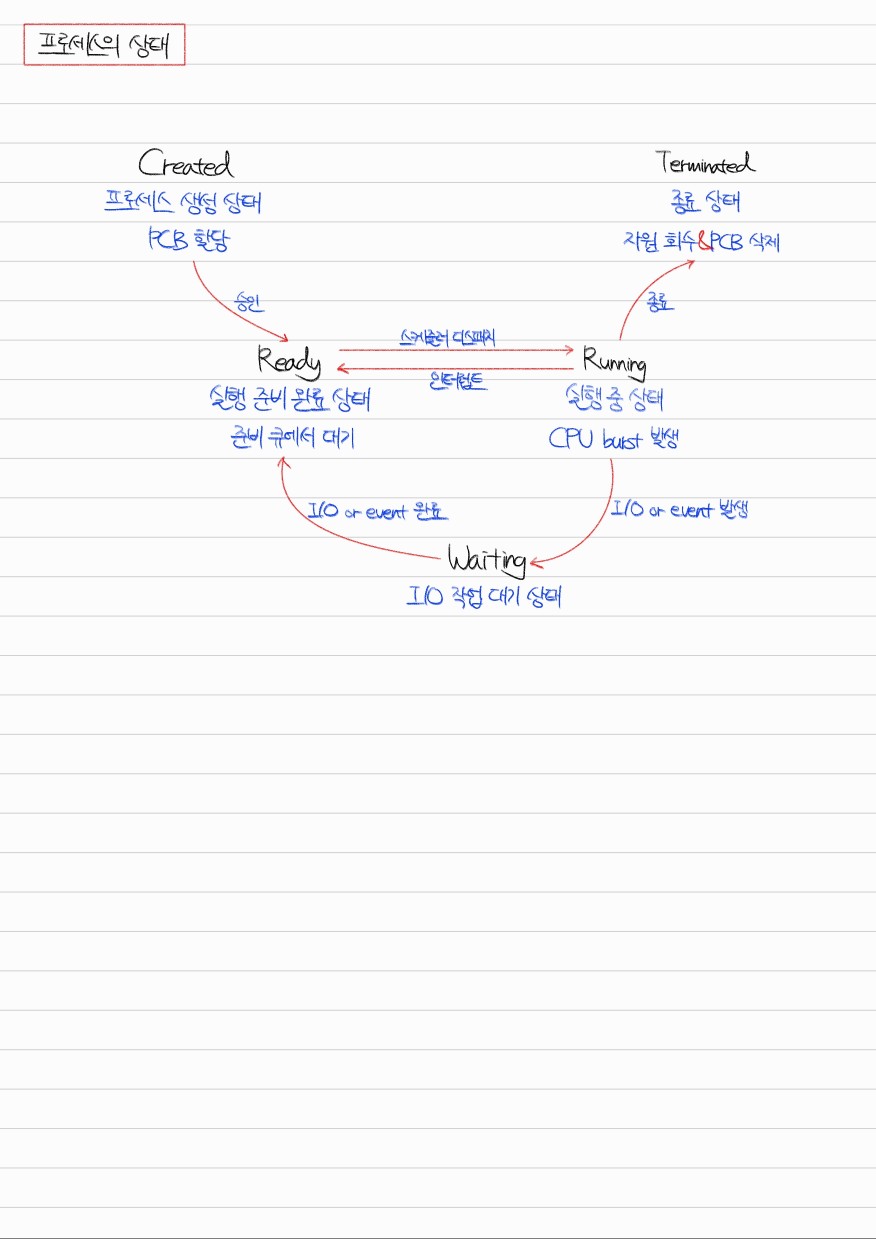 프로세스의 상태
Created
프로세스 생성 상태
PCB 할당
Terminated
종료 상태
자원 회수&PCB 삭제
승인
종료
스케줄러 디스패치
Ready
Running
인터럽트
실행 준비 완료 상태
준비 큐에서 대기
실행 중 상태
CPU burst 발생
I/O or event 완료
I/O or event 발생
Waiting
I/O 작업 대기 상태